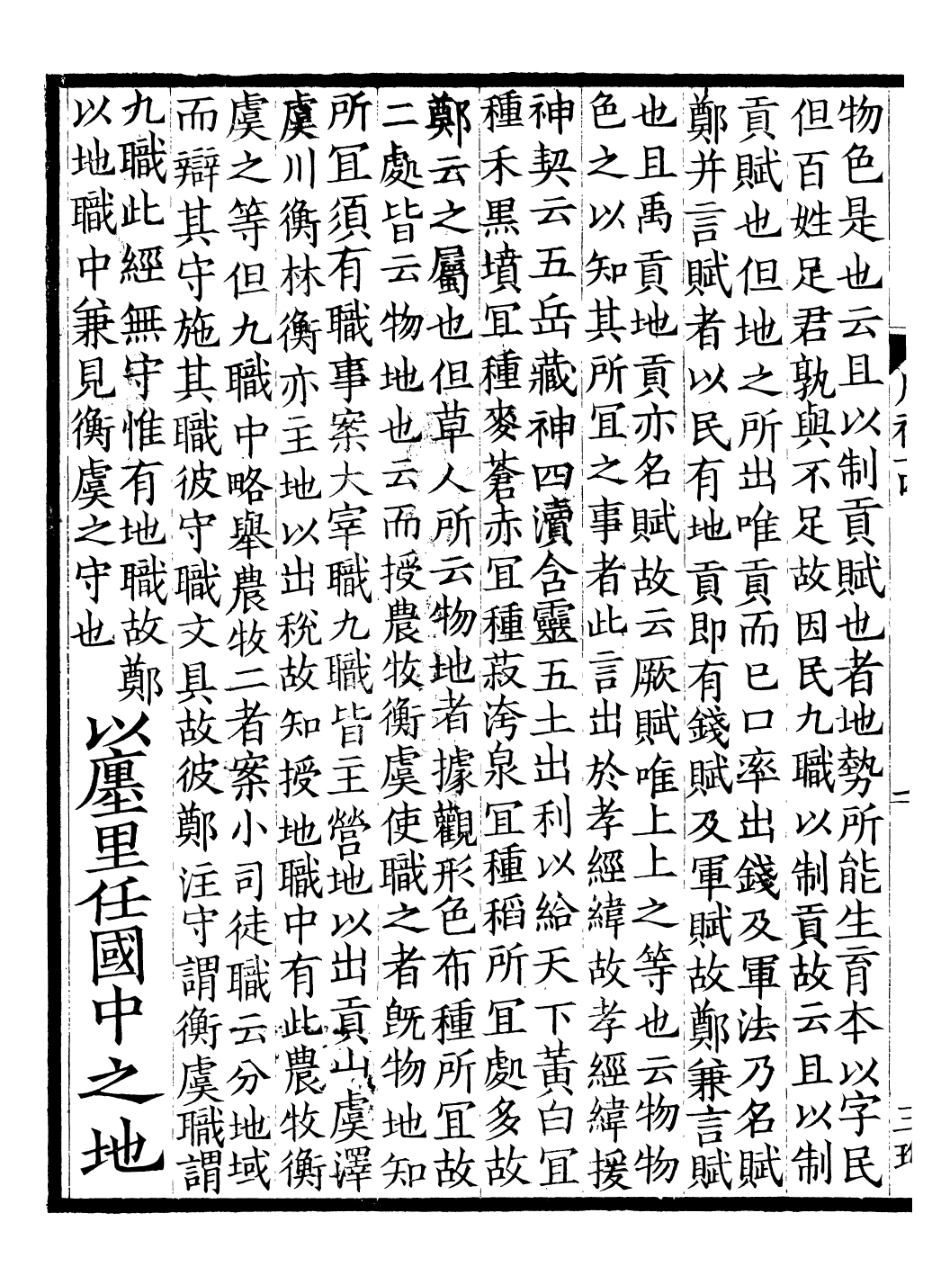 物色是也云且以制貢賦也者地勢所能生育本以字民
但百姓足君孰與不足故因民九職以制貢故云且以制
貢賦也但地之所出唯貢而已口率出錢及軍法乃名賦
鄭并言賦者以民有地貢即有錢賦及軍賦故鄭兼言賦
也且禹貢地貢亦名賦故云厥賦唯上上之等也云物物
色之以知其所冝之事者此言出於孝經緯故孝經緯援
神契云五岳藏神四瀆含靈五土出利以給天下黃白冝
種禾黑墳冝種麥蒼赤冝種菽洿泉冝種稻所冝處多故
鄭云之屬也但草人所云物地者據觀形色布種所冝故
二處皆云物地也云而授農牧衡虞使職之者旣物地知
所冝須有職事案大宰職九職皆主營地以出貢山虞澤
虞川衡林衡亦主地以出稅故知授地職中有此農牧衡
虞之等但九職中略舉農牧二者案小司徒職云分地域
而辯其守施其職彼守職文具故彼鄭注守謂衡虞職謂
九職此經無守惟有地職故鄭
以地職中兼見衡虞之守也
以廛里任國中之地
二
三